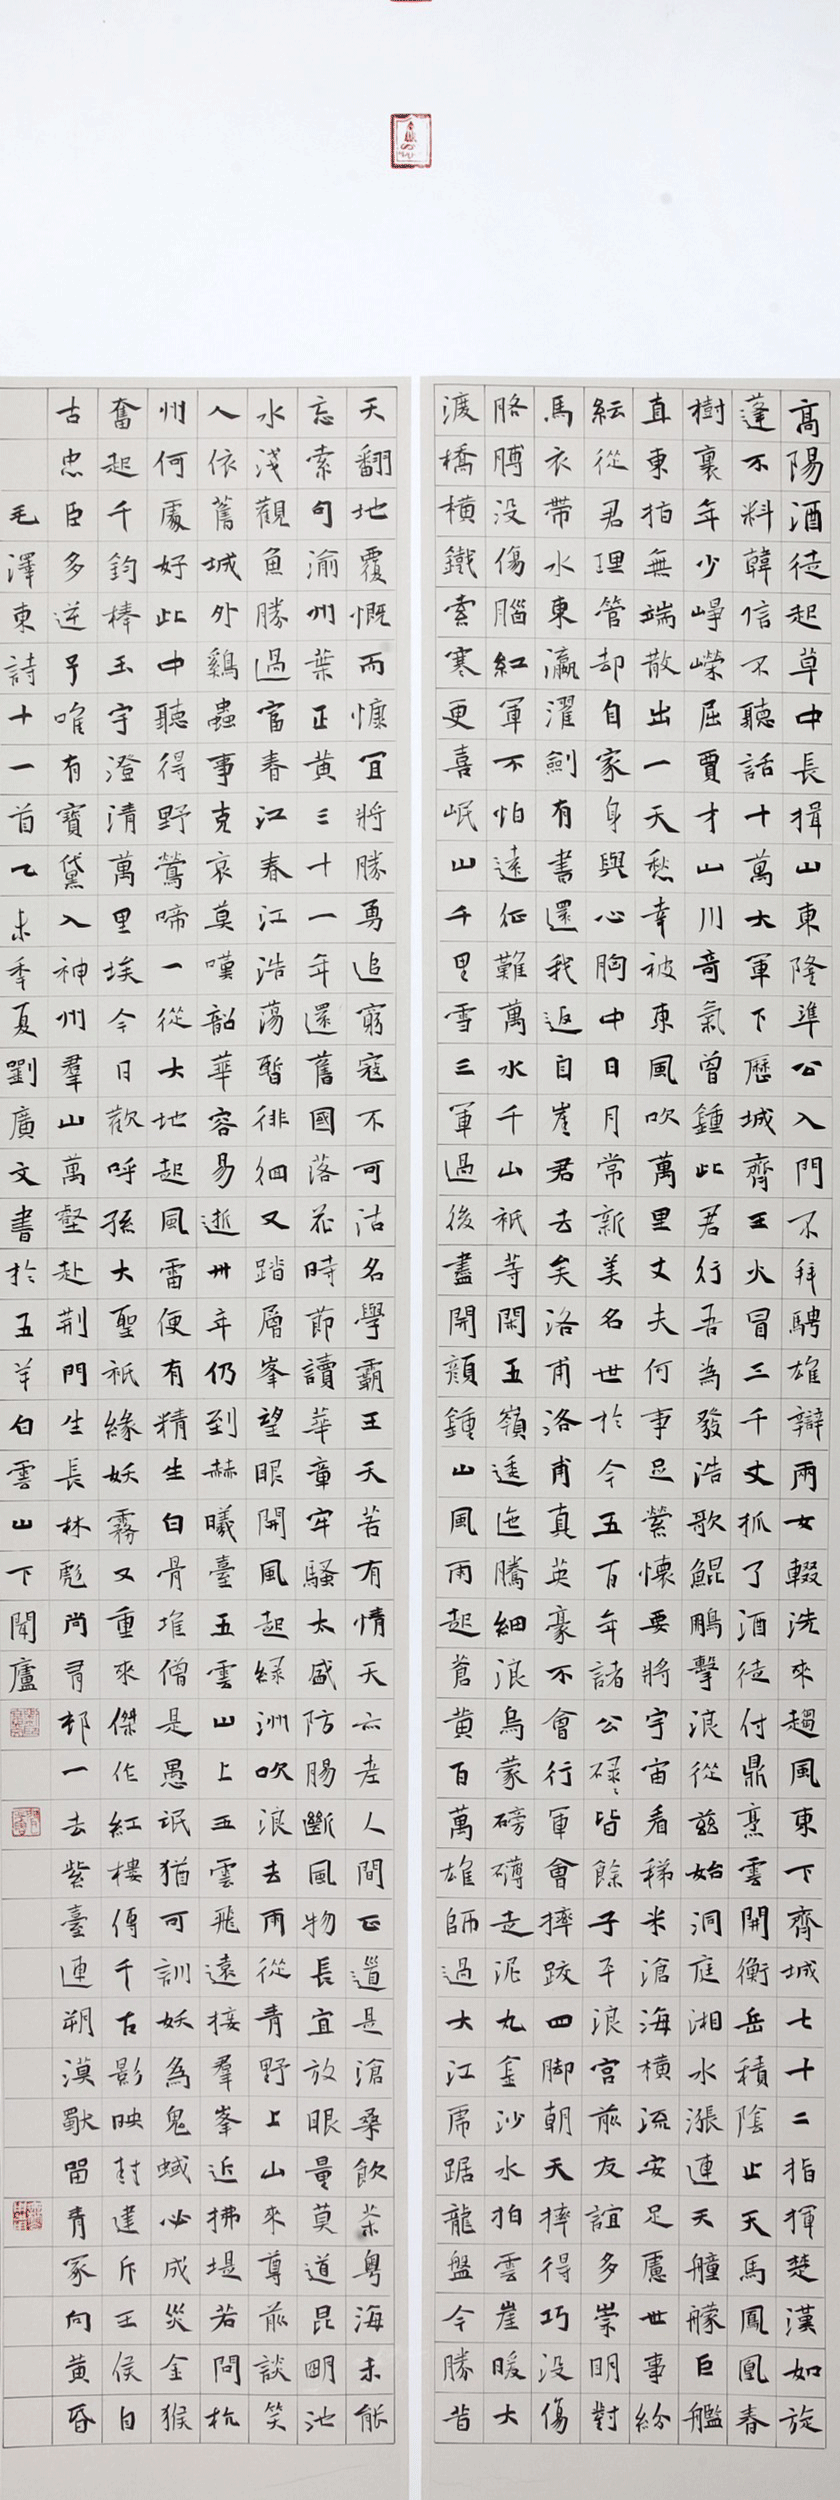 高陽酒徒起草中長揖山東隆準公入門不拜騁雄辯兩女輟洗來趨風東下齊城七十二指揮楚漢如旋
蓬不料韓信不聽話十萬大軍下歷城齊王火冒三千丈抓了酒徒付鼎烹雲開衡岳積陰止天馬鳳凰春
樹裏年少崢嶸屈賈才山川奇氣曾鍾此君行吾為發浩歌鯤鵬擊浪從茲始洞庭湘水漲連天艟艨巨艦
直東指無端散出一天愁幸被東風吹萬里丈夫何事足縈懷要將宇宙看稊米滄海橫流安足慮世事紛
紜從君理管却自家身與心胸中日月常新美名世於今五百年諸公碌〻皆餘子平浪宮前友誼多崇明對
馬衣帶水東瀛濯劍有書還我返自崖君去矣洛甫洛甫真英豪不會行軍會摔跤四脚朝天摔得巧没傷
胳膊没傷腦紅軍不怕遠征難萬水千山衹等閑五嶺逶迤騰細浪烏蒙磅礴走泥丸金沙水拍雲崖暖大
渡橋橫鐵索寒更喜岷山千里雪三軍過後盡開顏鍾山風雨起蒼黃百萬雄師過大江虎踞龍盤今勝昔
天翻地覆慨而慷宜將勝勇追窮寇不可沽名學霸王天若有情天亦老人間正道是滄桑飲茶粵海未能
忘索句渝州葉正黃三十一年還舊國落花時節讀華章牢騷太盛防腸斷風物長宜放眼量莫道昆明池
水淺觀魚勝過富春江春江浩蕩暫徘徊又踏層峯望眼開風起綠洲吹浪去雨從青野上山來尊前談笑
人依舊城外雞蟲事克哀莫嘆韶華容易逝卅年仍到赫曦臺五雲山上五雲飛遠接羣峯近拂堤若問杭
州何處好此中聽得野鶯啼一從大地起風雷便有精生白骨堆僧是愚氓猶可訓妖為鬼蜮必成災金猴
奮起千鈞棒玉宇澄清萬里埃今日歡呼孫大聖衹緣妖霧又重來傑作紅樓傳千古影映封建斥王侯自
古忠臣多逆子唯有寶黛入神州羣山萬壑赴荆門生長林彪尚有邨一去紫臺連朔漠獨留青冢向黃昏
毛澤東詩十一首乙未季夏劉廣文書於五羊白雲山下聞廬